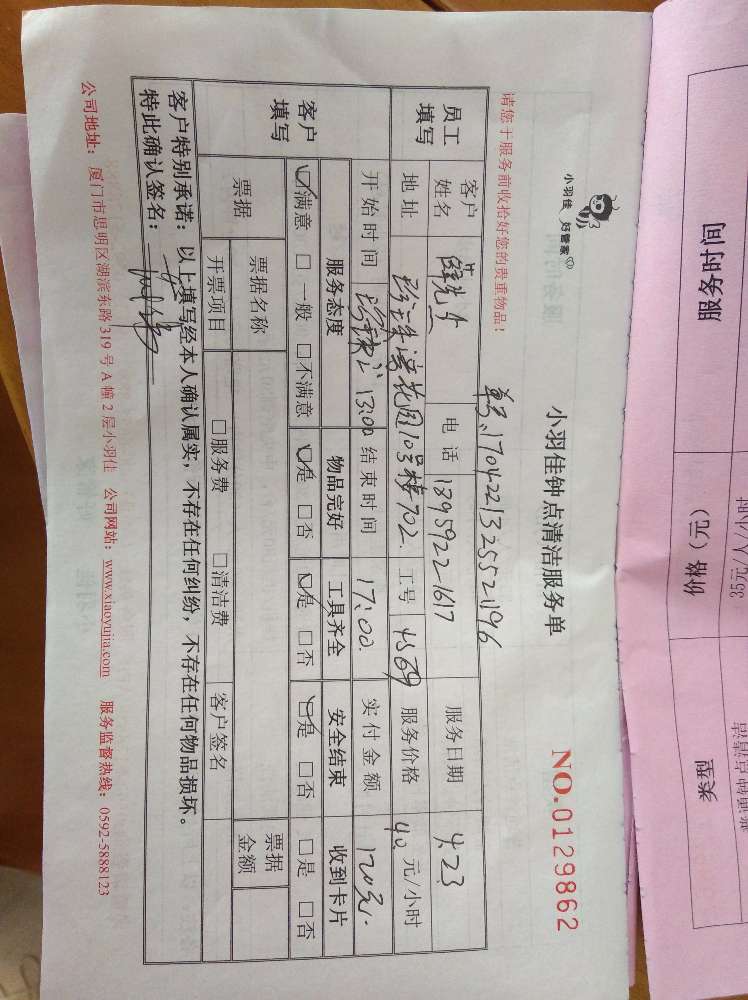 小羽佳 好管家
小羽佳钟点清洁服务单
NO.0129862
请您于服务前收拾好您的贵重物品！
单号:1704221325521196
员工填写
客户姓名 电话 13959221617 服务日期 4.23
地址 花园10号楼702. 工号 4569 服务价格 40 元/小时
开始时间 13:00 结束时间 17:00. 实付金额 120元.
客户填写
服务态度 物品完好 工具齐全 安全结束 收到卡片
☑满意 □一般 □不满意 ☑是 □否 ☑是 □否 ☑是 □否 □是 □否
票据 票据名称 票据金额
开票项目 □服务费 □清洁费 客户签名
客户特别承诺：以上填写经本人确认属实，不存在任何纠纷，不存在任何物品损坏。
特此确认签名：
公司地址：厦门市思明区湖滨东路319号A幢2层小羽佳 公司网站：www.xiaoyujia.com 服务监督热线：0592-5888123
服务时间 价格（元） 类型
35元/人/小时